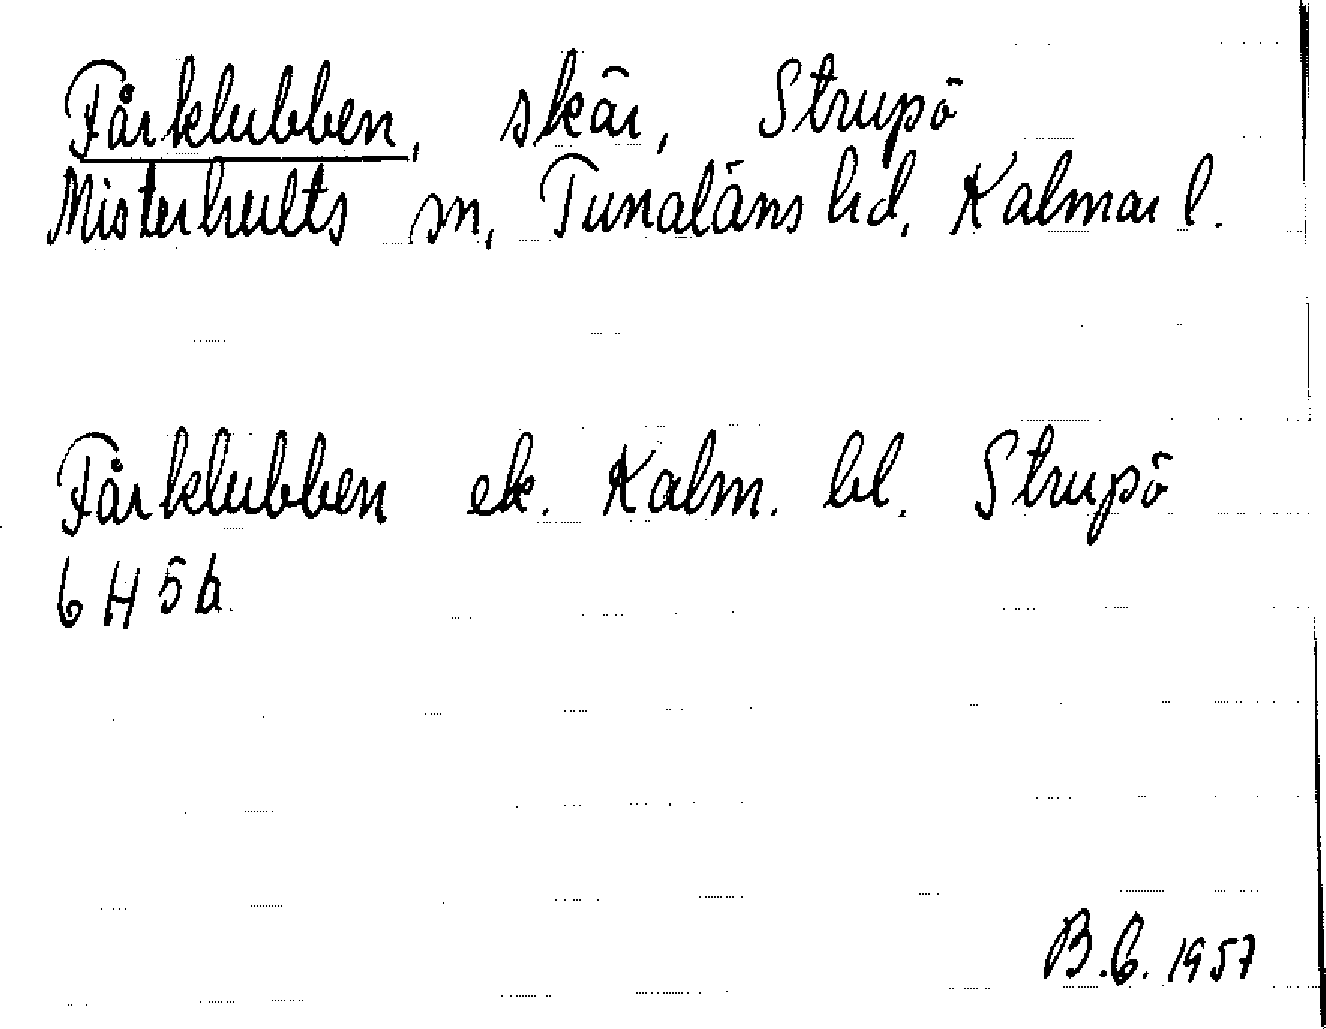 Fårklubben, skär, Strupö
Misterhults sn, Tunaläns hd, Kalmar l.
Fårklubben ek. Kalm. bl. Strupö
6H5b
B.G. 1957